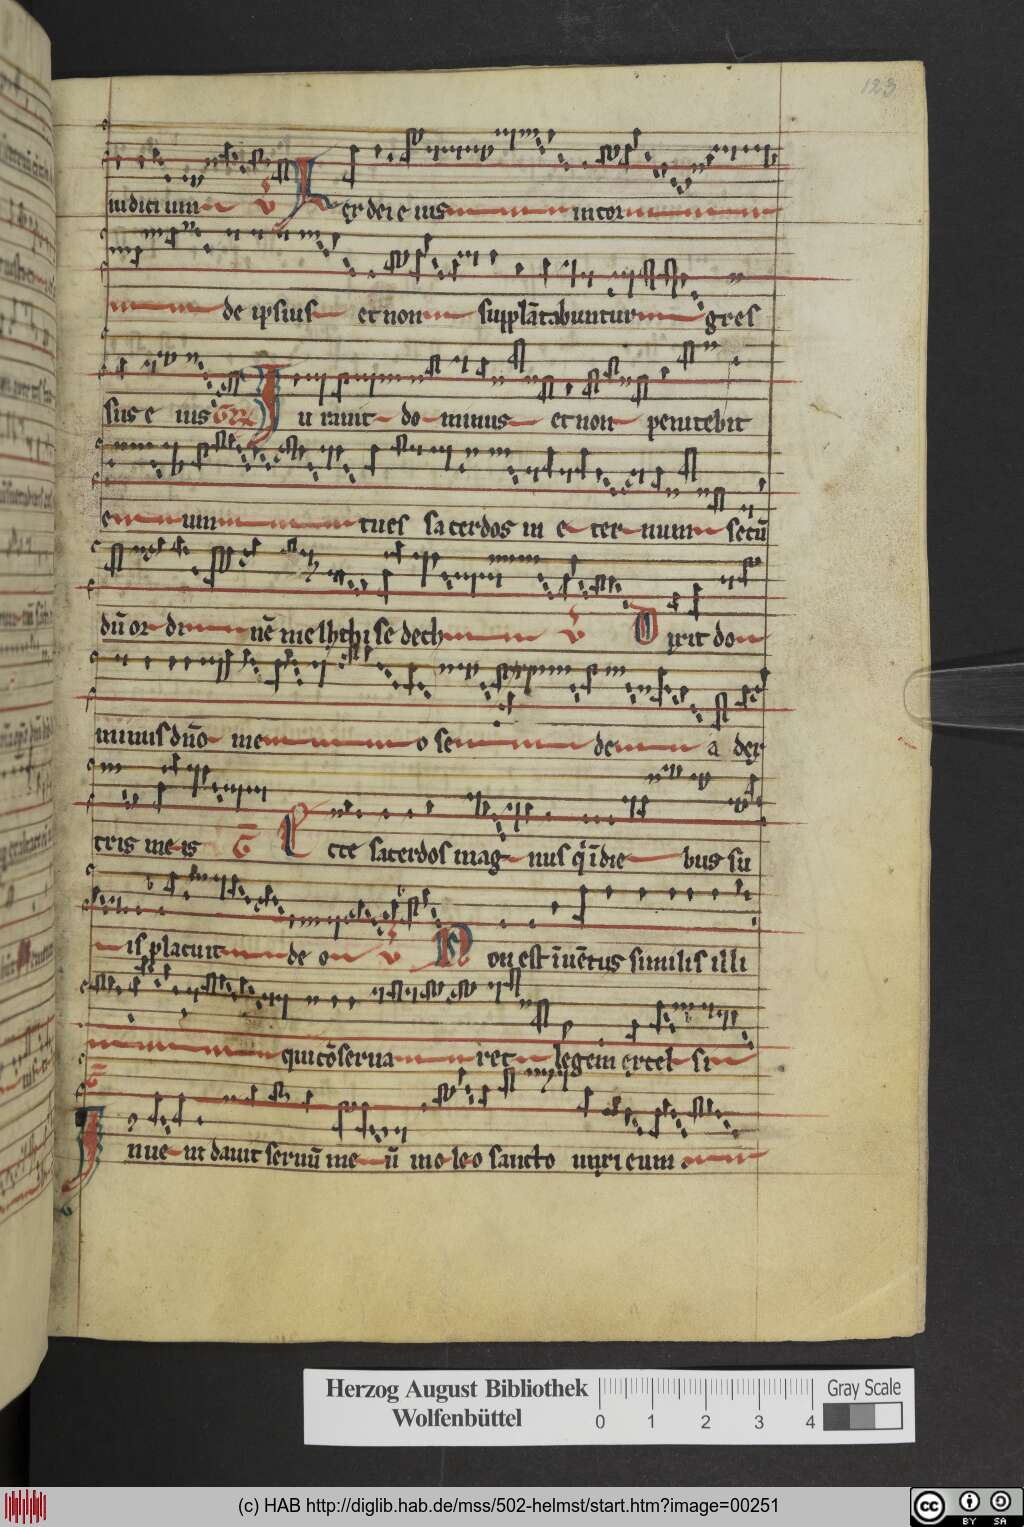 123
iudicium v Lex dei e ius in cor
de ipsius et non supplātabuntur gres
sus e ius Gr Iu rauit do minus et non penitebit
e um tu es sacerdos in e ter num secū
dū or di nē melhchisedech v Dixit do
minus dn̄o me o se de a dex
tris me is G Ecce sacerdos mag nus q īdie bus su
is placuit de o v Non est īuētus similis illi
qui cōserua ret legem excel si
G
Inue ni dauit seruū me ū in o leo sancto unxi eum
Herzog August Bibliothek
Wolfenbüttel
0 1 2 3 4
Gray Scale
(c) HAB http://diglib.hab.de/mss/502-helmst/start.htm?image=00251
cc BY SA